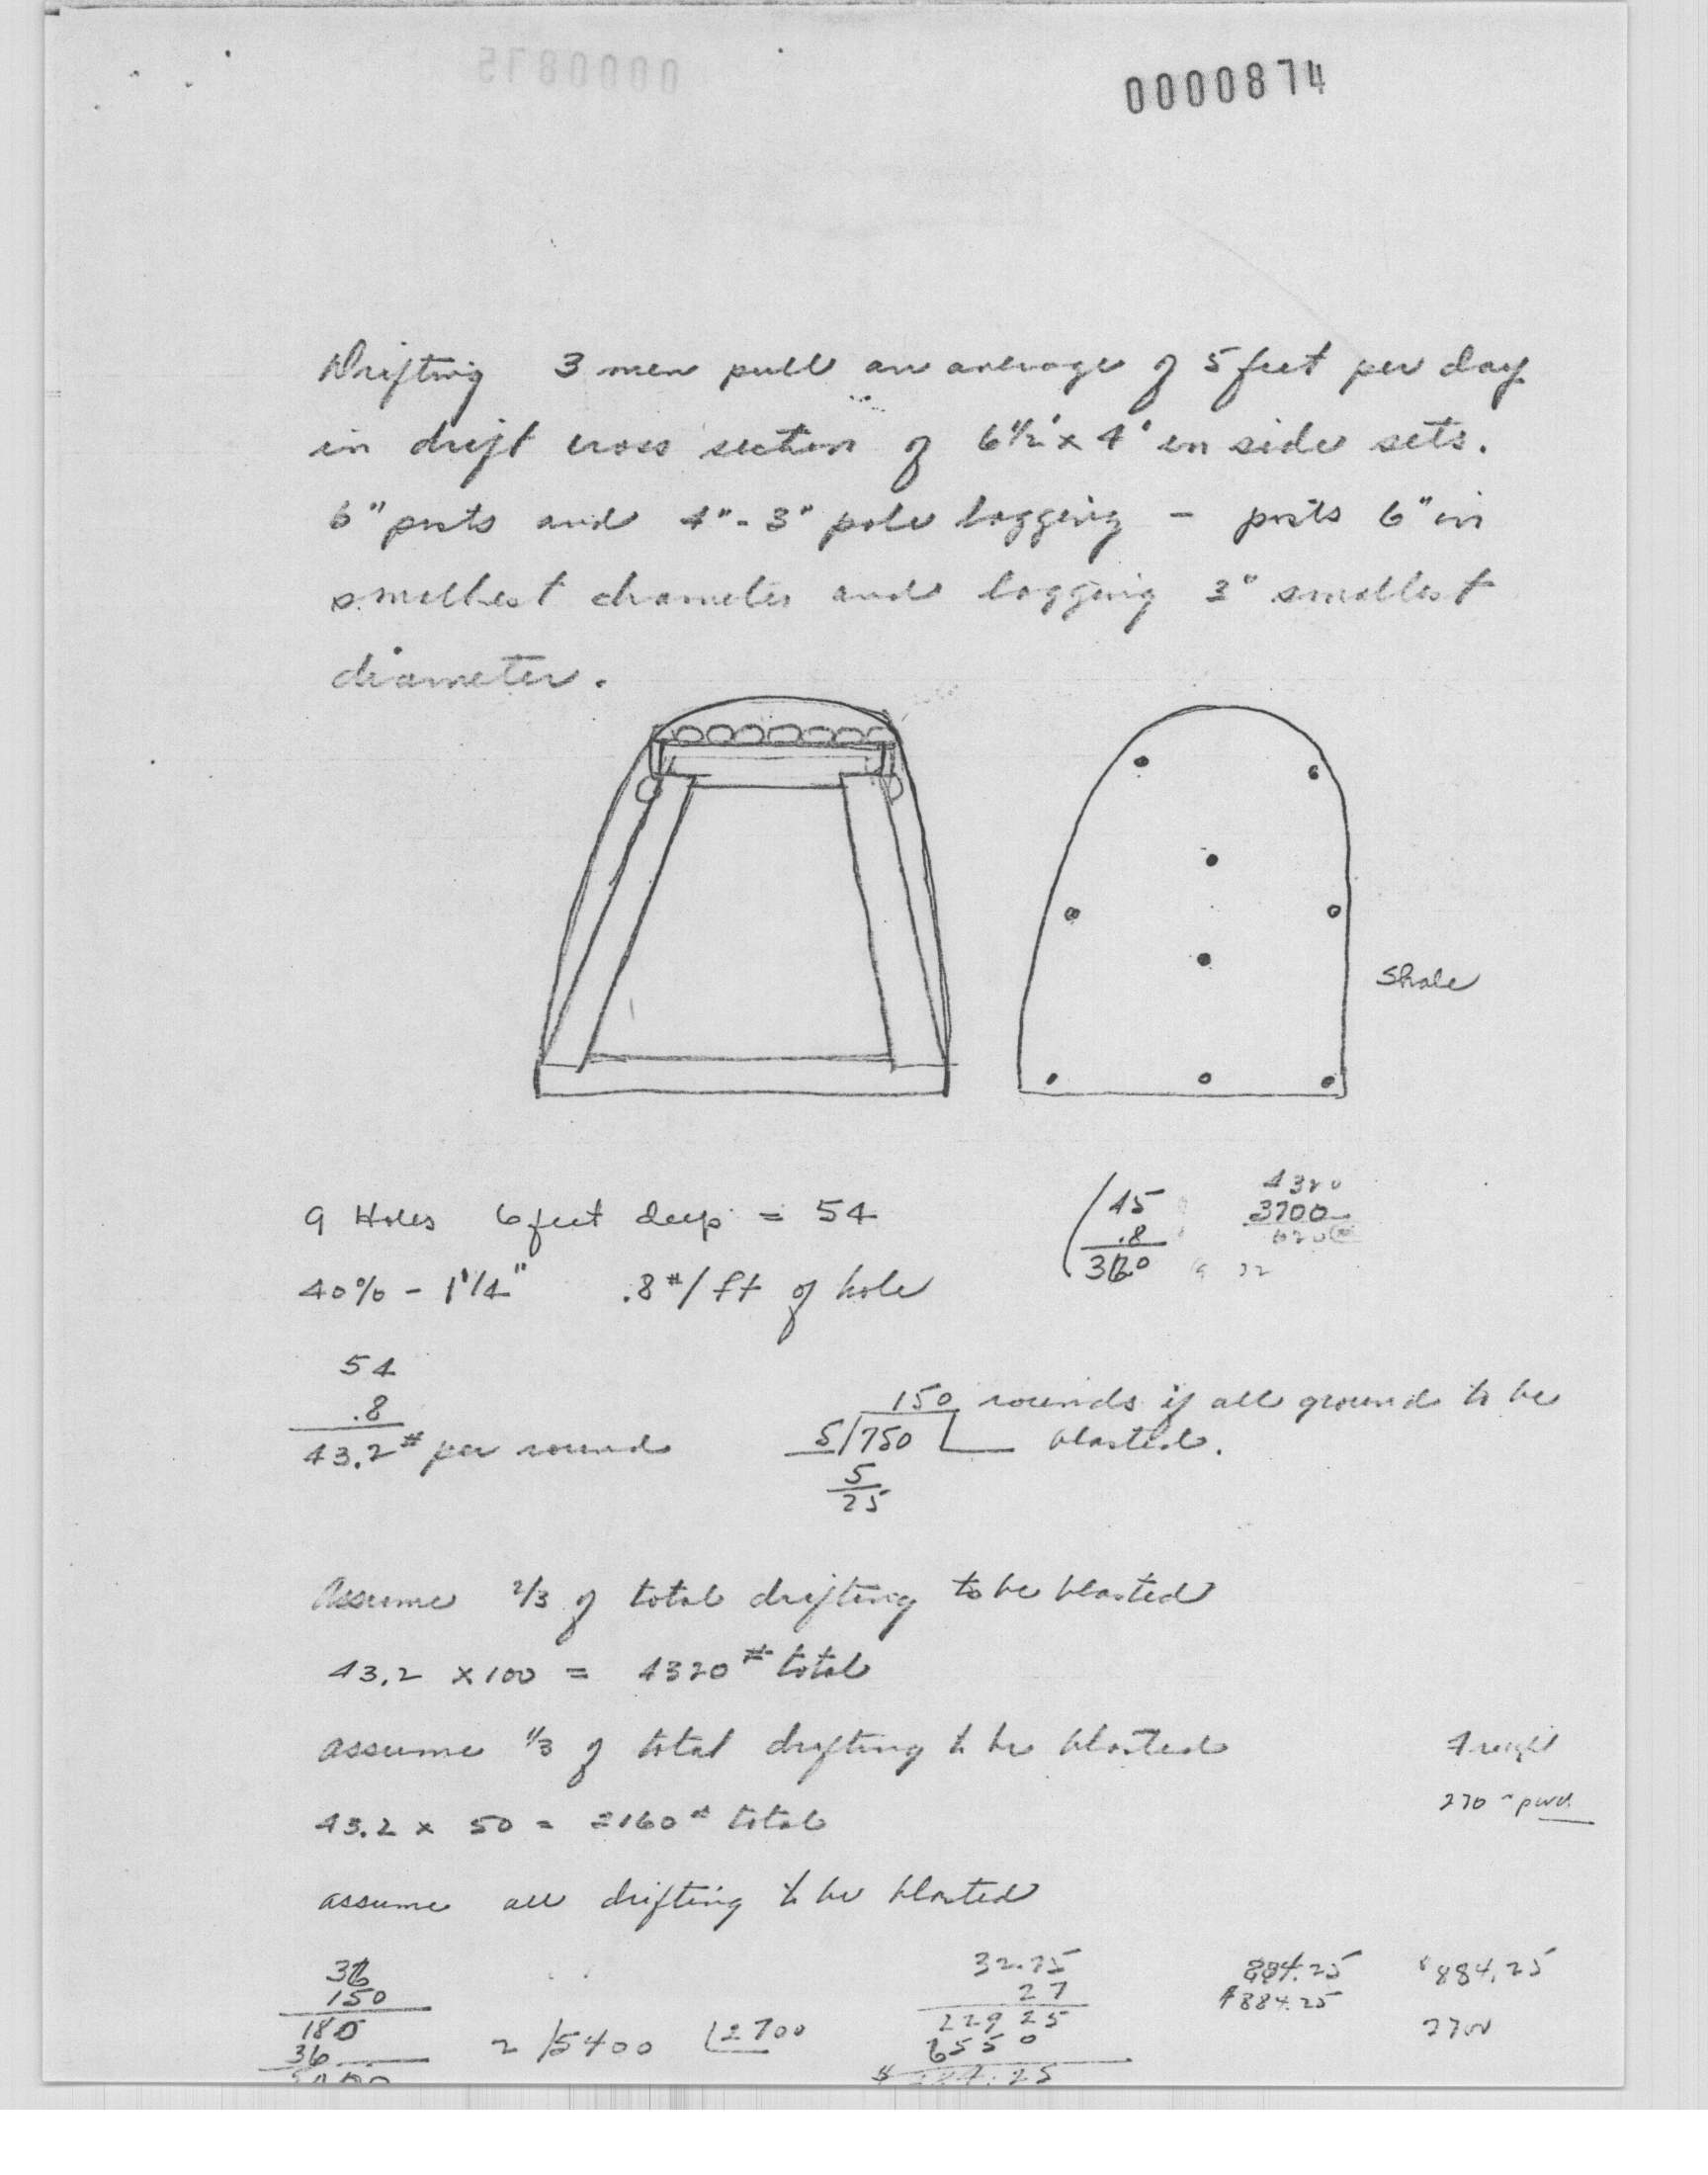 0000874
Drifting 3 men pull an average of 5 feet per day
in drift cross section of 6 1/2' x 4' in side sets.
6" posts and 4"-3" pole lagging — posts 6" in
smallest diameter and lagging 3" smallest
diameter.
Shale
9 Holes 6 feet deep = 54
40% - 1 1/4" .8#/ft of hole
45
.8
360
4320
3700
620
54
.8
43.2# per round
150 rounds if all ground to be
5/750 blasted.
5
25
Assume 2/3 of total drifting to be blasted
43.2 x 100 = 4320# total
assume 1/3 of total drifting to be blasted
43.2 x 50 = 2160# total
Freight
270
assume all drifting to be blasted
36
150
180
36
2/5400 2700
32.75
27
229 25
655 0
884.25
$884.25
$884.25
2700